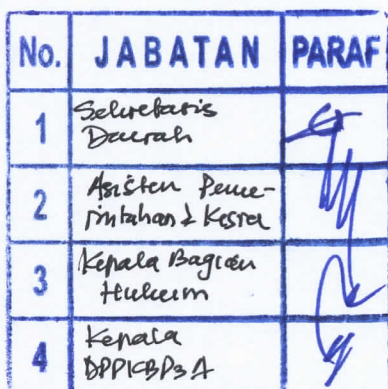 No. JABATAN PARAF
1 Sekretaris
Daerah
2 Asisten Peme-
rintahan & Kesra
3 Kepala Bagian
Hukum
4 Kepala
DPPKBP3A